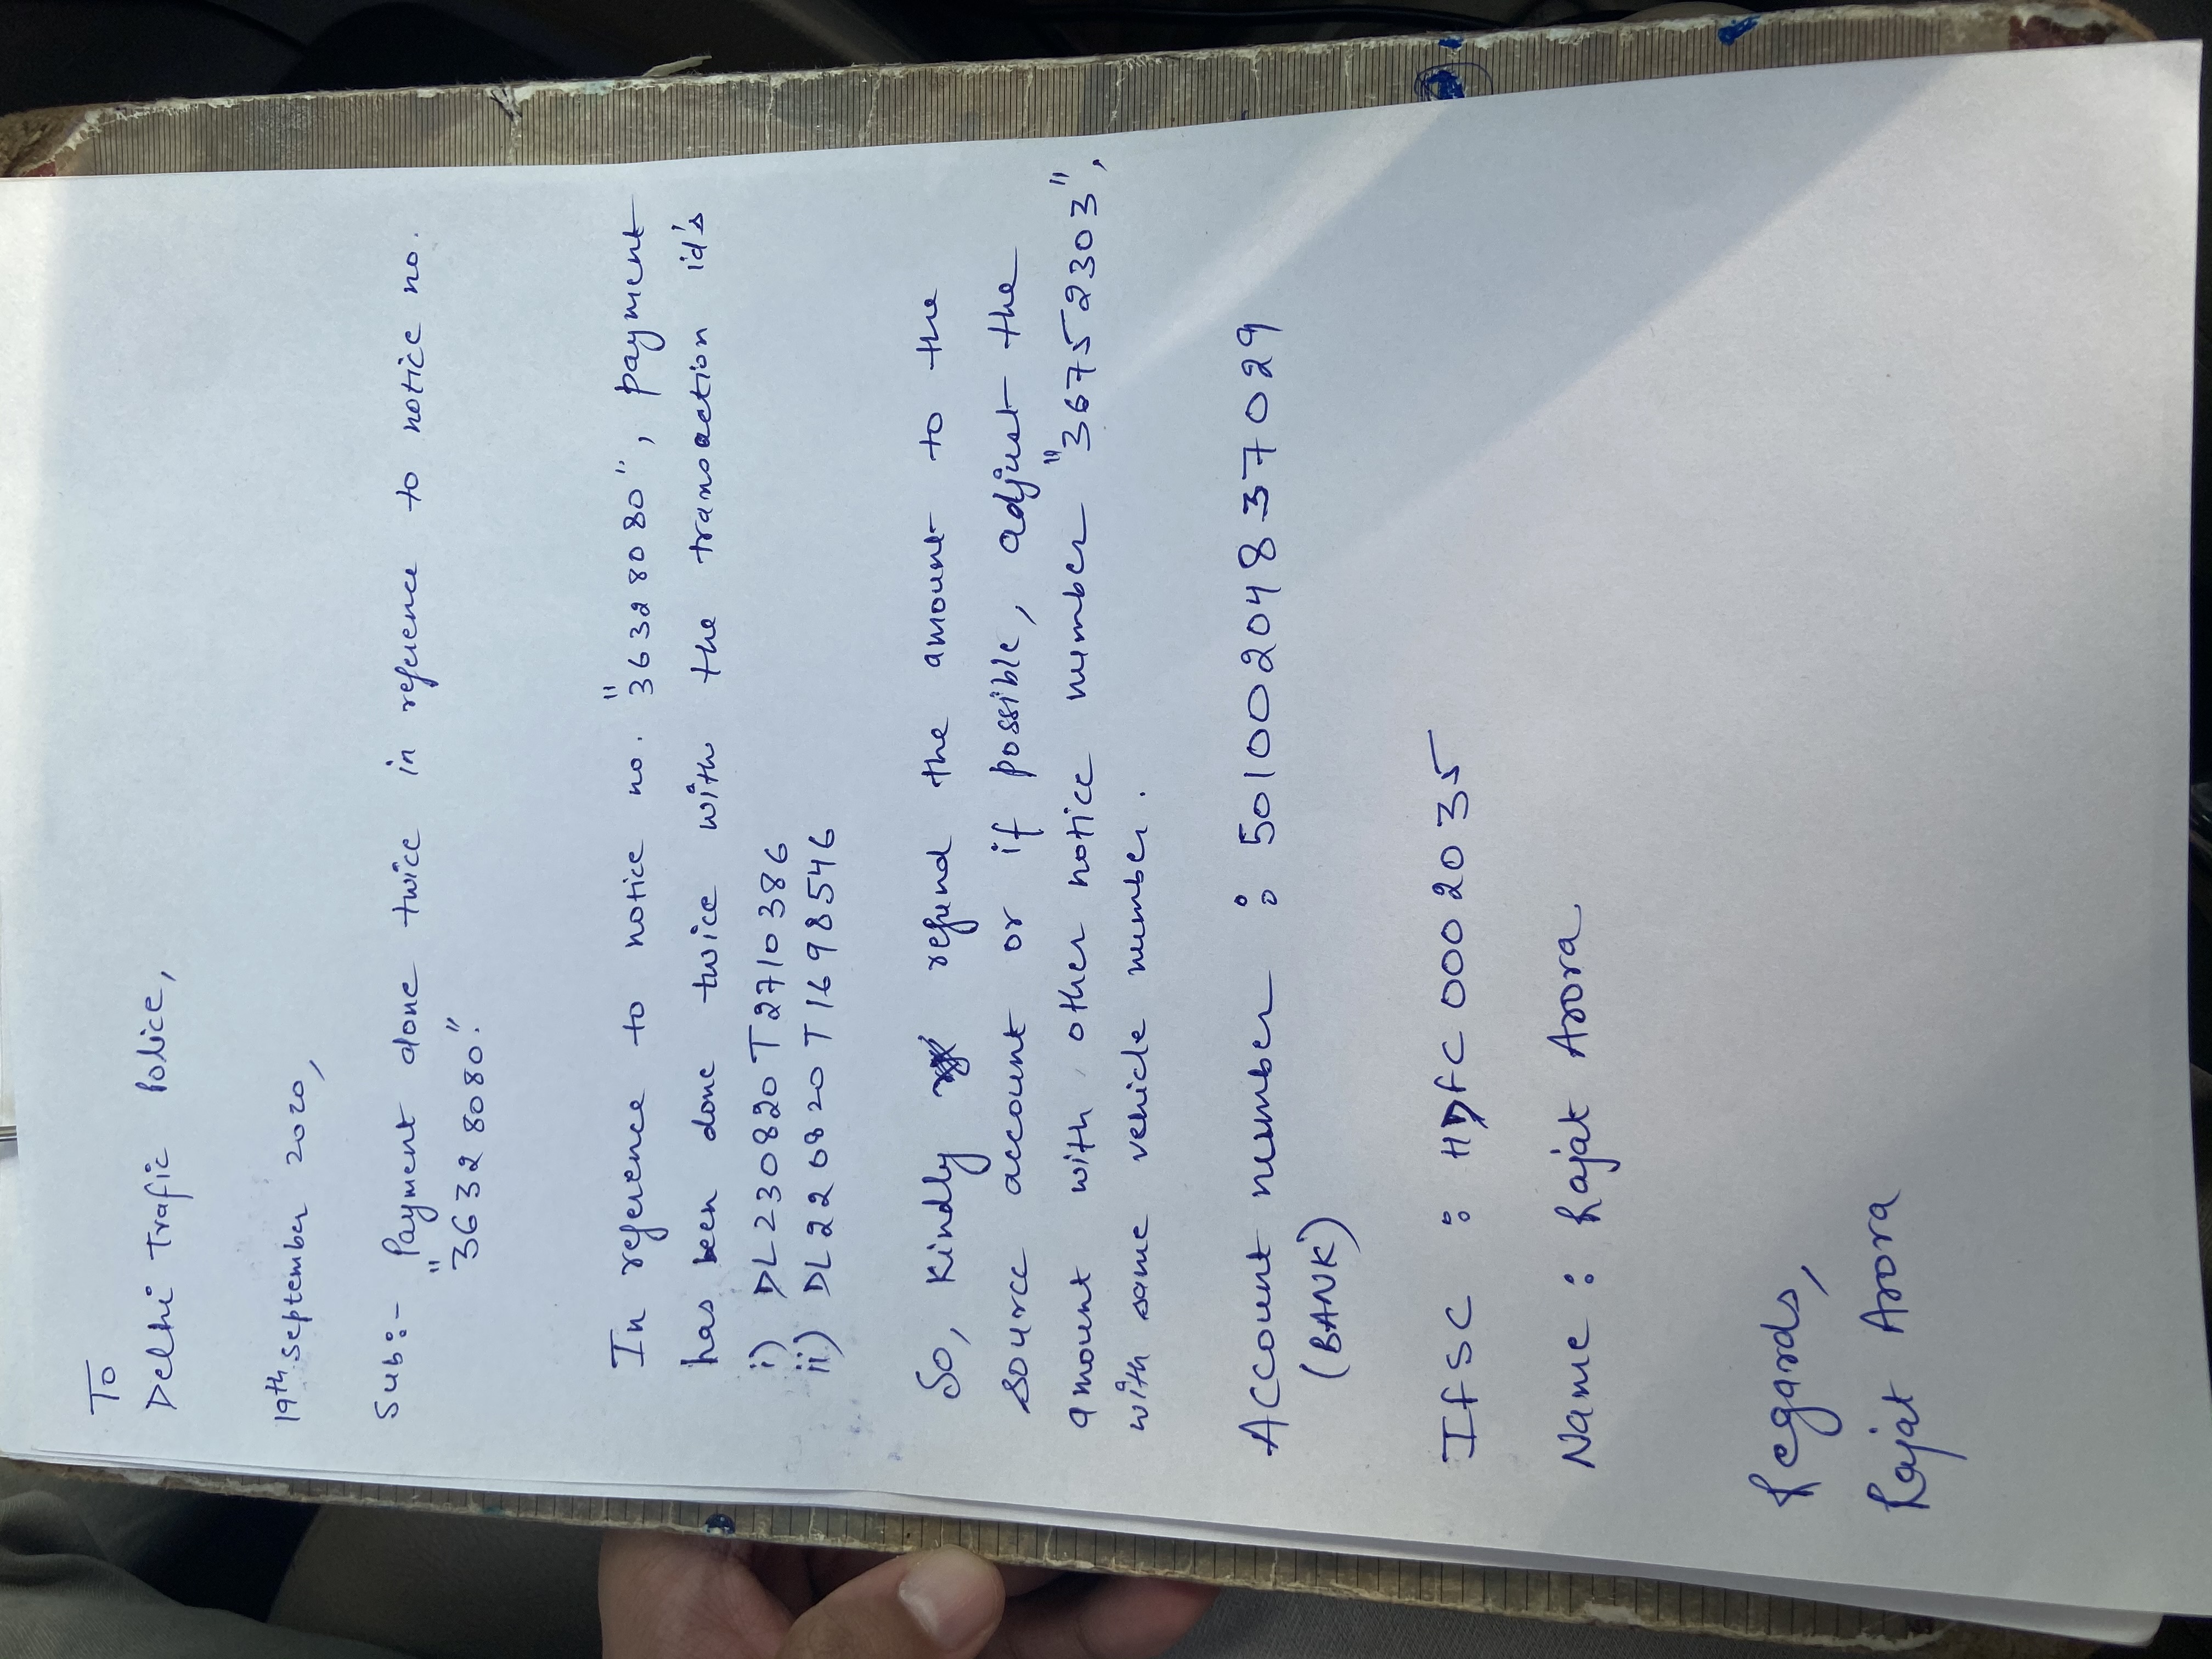 To
Delhi Trafic Police,
19th September 2020,
Sub:- Payment done twice in reference to notice no.
"36328080."
In reference to notice no. "36328080", payment
has been done twice with the transaction id's
i) DL230820T2710386
ii) DL220820T1698546
So, Kindly refund the amount to the
source account or if possible, adjust the
amount with other notice number "36752303",
with same vehicle number.
Account number : 50100204837029
(BANK)
IFSC : HDFC0002035
Name : Rajat Arora
Regards,
Rajat Arora